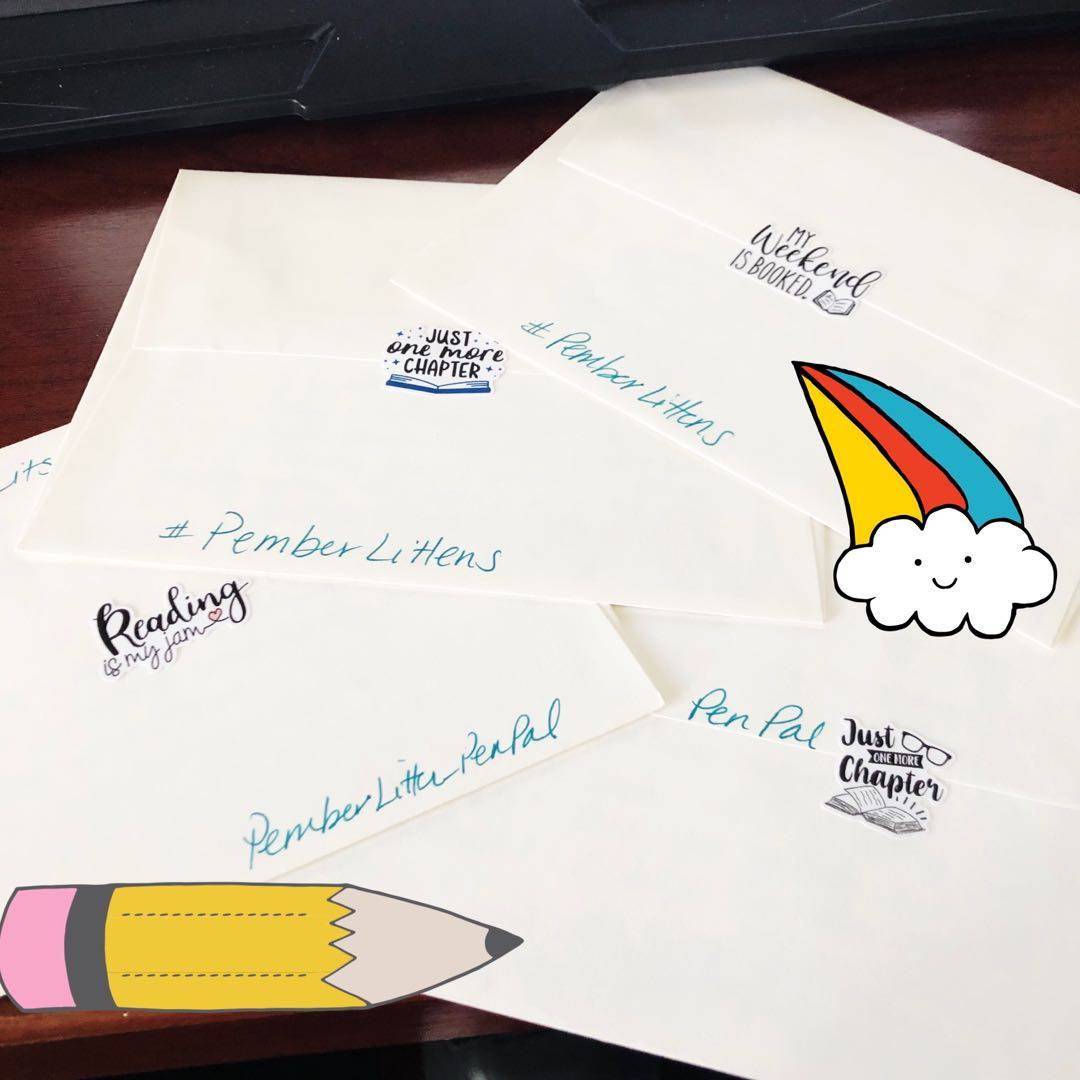 MY
Weekend
IS BOOKED.
# PemberLittens
JUST
one more
CHAPTER
# PemberLittens
Reading
is my jam
PemberLitten PenPal
Pen Pal
Just
ONE MORE
Chapter